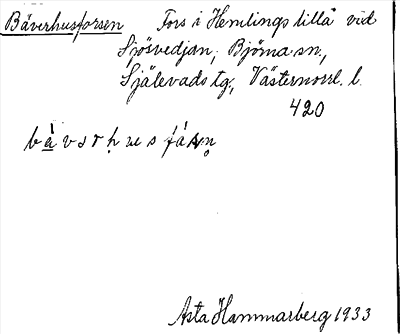 Bäverhusforsen Fors i Hemlings lillå vid
Sjösvedjan, Björna sn,
Själevads tg, Västernorrl. l.
420
Asta Hammarberg 1933